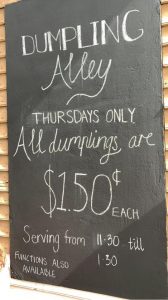 DUMPLING
Alley
THURSDAYS ONLY
All dumplings, are
$1.50¢
EACH
Serving from 11:30 till
1:30
FUNCTIONS ALSO
AVAILABLE